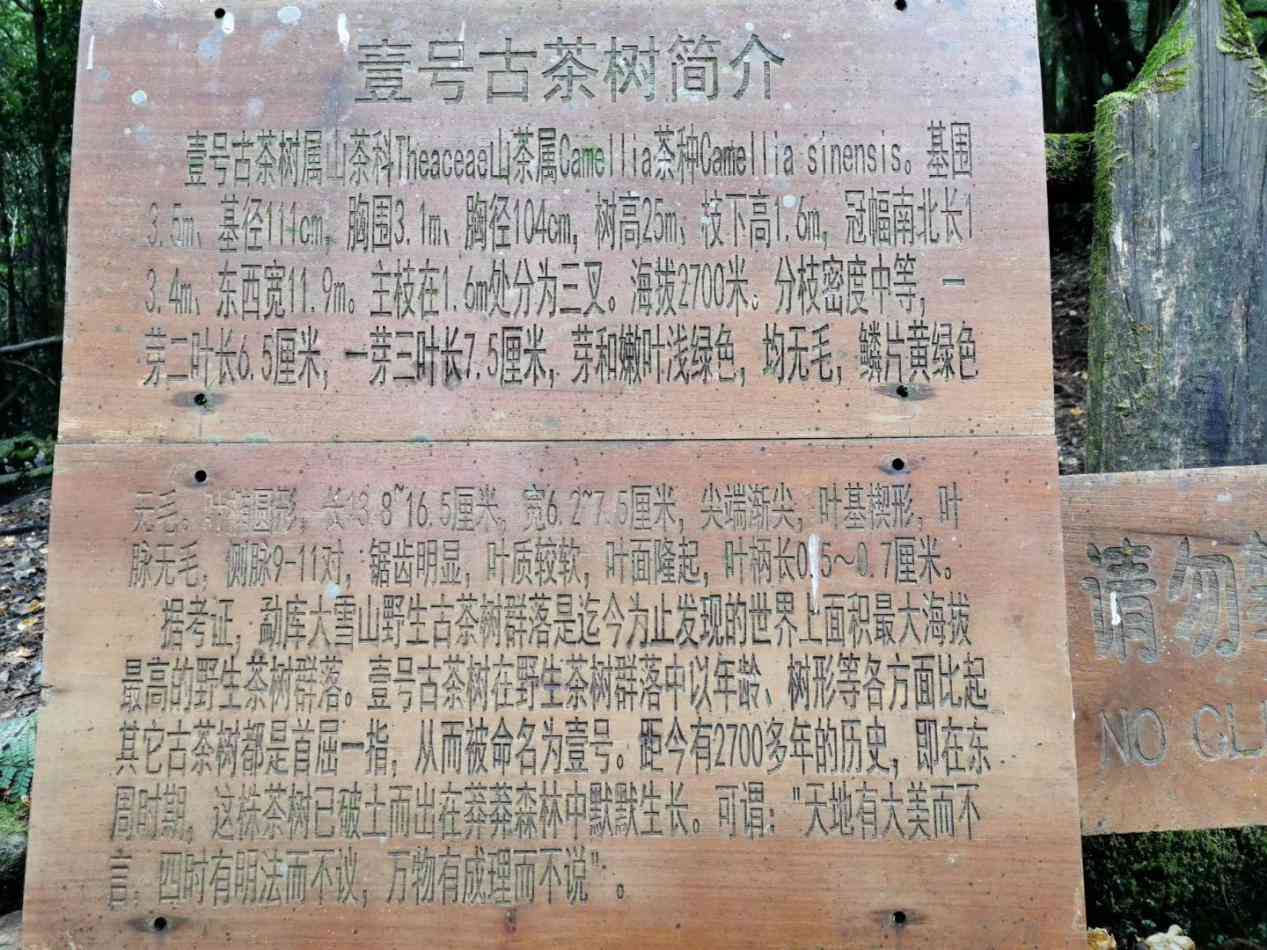 壹号古茶树简介
壹号古茶树属山茶科Theaceae山茶属Camellia茶种Camellia sinensis。基围
3.5m、基径111cm，胸围3.1m、胸径104cm，树高25m、枝下高1.6m，冠幅南北长1
3.4m、东西宽11.9m。主枝在1.6m处分为三叉。海拔2700米。分枝密度中等，一
芽二叶长6.5厘米，一芽三叶长7.5厘米，芽和嫩叶浅绿色，均无毛，鳞片黄绿色
无毛。叶椭圆形，长13.8~16.5厘米，宽6.2~7.5厘米，尖端渐尖，叶基楔形，叶
脉无毛，侧脉9-11对，锯齿明显，叶质较软，叶面隆起，叶柄长0.5～0.7厘米。
据考证，勐库大雪山野生古茶树群落是迄今为止发现的世界上面积最大海拔
最高的野生茶树群落。壹号古茶树在野生茶树群落中以年龄、树形等各方面比起
其它古茶树都是首屈一指，从而被命名为壹号。距今有2700多年的历史，即在东
周时期，这株茶树已破土而出在莽莽森林中默默生长。可谓："天地有大美而不
言，四时有明法而不议，万物有成理而不说"。
请勿
NO CLI